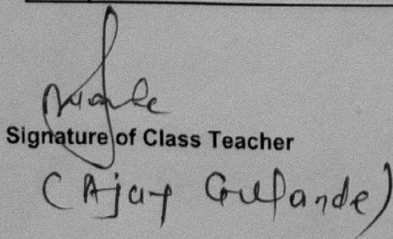 Signature of Class Teacher
(Ajay Gulande)